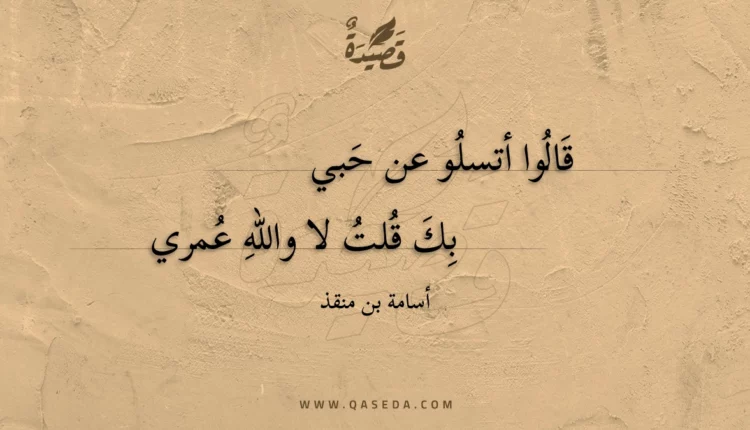 قَصِيدَةٌ
قَالُوا أتسلُو عن حَبي
بِكَ قُلتُ لا واللهِ عُمري
أسامة بن منقذ
WWW.QASEDA.COM